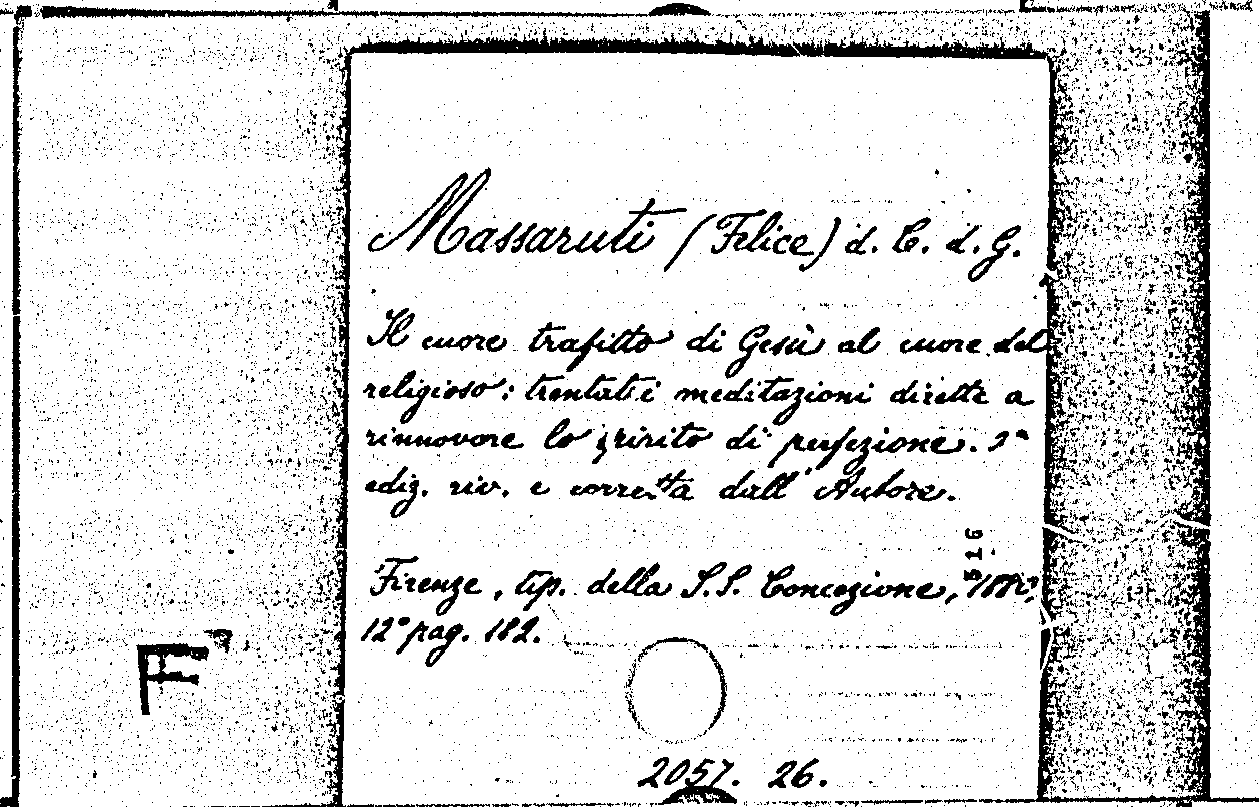 Massaruti (Felice) d. C. d. G.
Il cuore trafitto di Gesù al cuore del
religioso: trentatrè meditazioni dirette a
rinnovare lo spirito di perfezione. 2ª
ediz. riv. e corretta dall' Autore.
516
Firenze, tip. della S.S. Concezione,
12° pag. 182.
F
2057. 26.